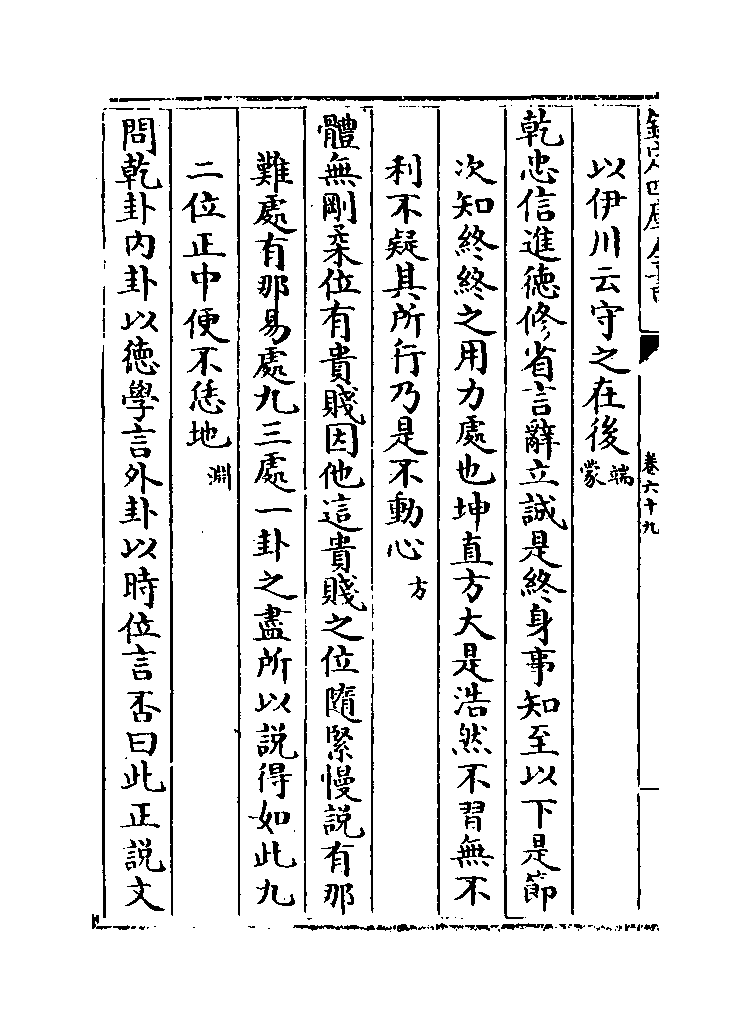 欽定四庫全書
卷六十九
以伊川云守之在後端蒙
乾忠信進徳修省言辭立誠是終身事知至以下是節
次知終終之用力處也坤直方大是浩然不習無不
利不疑其所行乃是不動心方
體無剛柔位有貴賤因他這貴賤之位隨緊慢説有那
難處有那易處九三處一卦之盡所以説得如此九
二位正中便不恁地淵
問乾卦内卦以徳學言外卦以時位言否曰此正説文